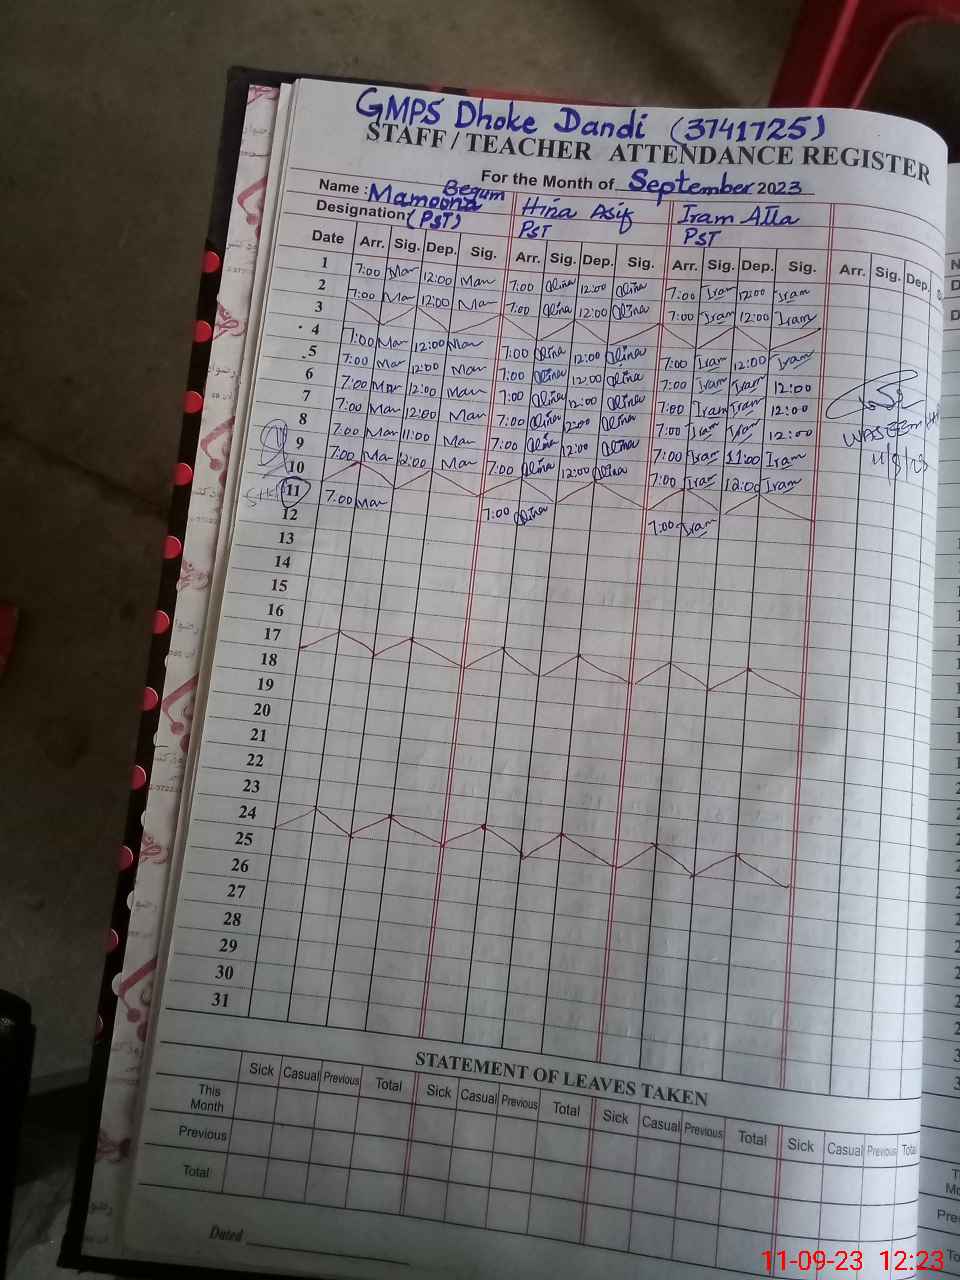 GMPS Dhoke Dandi (3741725)
STAFF / TEACHER ATTENDANCE REGISTER
For the Month of September 2023
Name : Mamoona Begum Hina Asif Iram Atta
Designation (PST) PST PST
Date Arr. Sig. Dep. Sig. Arr. Sig. Dep. Sig. Arr. Sig. Dep. Sig. Arr. Sig. Dep.
1 7:00 Mam 12:00 Mam 7:00 Hina 12:00 Hina 7:00 Iram 12:00 Iram
2 7:00 Mam 12:00 Mam 7:00 Hina 12:00 Hina 7:00 Iram 12:00 Iram
3
4 7:00 Mam 12:00 Mam 7:00 Hina 12:00 Hina 7:00 Iram 12:00 Iram
5 7:00 Mam 12:00 Mam 7:00 Hina 12:00 Hina 7:00 Iram Iram 12:00
6 7:00 Mam 12:00 Mam 7:00 Hina 12:00 Hina 7:00 Iram Iram 12:00
7 7:00 Mam 12:00 Mam 7:00 Hina 12:00 Hina 7:00 Iram Iram 12:00
8 7:00 Mam 11:00 Mam 7:00 Hina 12:00 Hina 7:00 Iram 11:00 Iram
9 7:00 Mam 12:00 Mam 7:00 Hina 12:00 Hina 7:00 Iram 12:00 Iram
10
11 7:00 Mam 7:00 Hina 7:00 Iram
12
13
14
15
16
17
18
19
20
21
22
23
24
25
26
27
28
29
30
31
WASEEM
STATEMENT OF LEAVES TAKEN
Sick Casual Previous Total Sick Casual Previous Total Sick Casual Previous Total Sick Casual Previous Total
This Month
Previous
Total
Dated
11-09-23 12:23